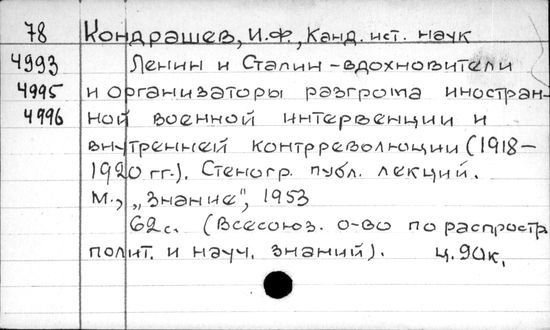 78 Кондрашев, И.Ф., Канд. ист. наук
4993 Ленин и Сталин – вдохновители
4995 и организаторы разгрома иностран-
4996 ной военной интервенции и
внутренней контрреволюции (1918–
1920 гг.). Стеногр. публ. лекций.
М., „Знание", 1953
62с. (Всесоюз. о-во по распростр.
полит. и науч. знаний). ц. 90к.